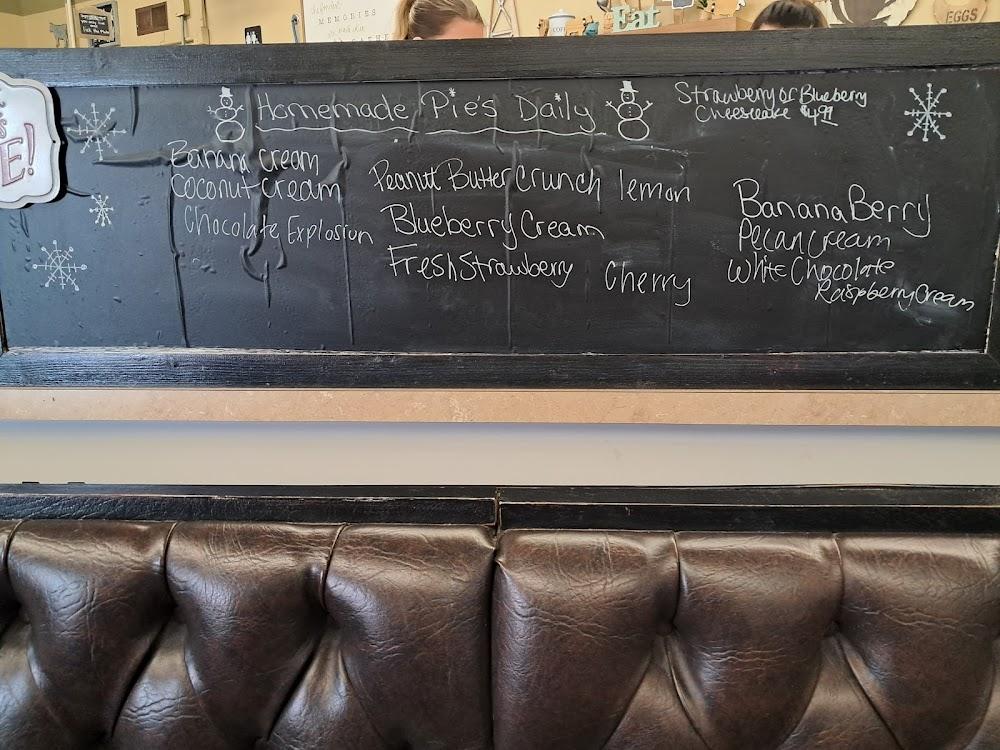 MEMORIES
Eat
EGGS
E!
Homemade Pie's Daily
Strawberry or Blueberry
Cheesecake $4.99
Banana cream
Coconut cream
Chocolate Explosion
Peanut Butter Crunch lemon
Blueberry Cream
Fresh Strawberry Cherry
Banana Berry
Pecan Cream
White Chocolate
Raspberry Cream